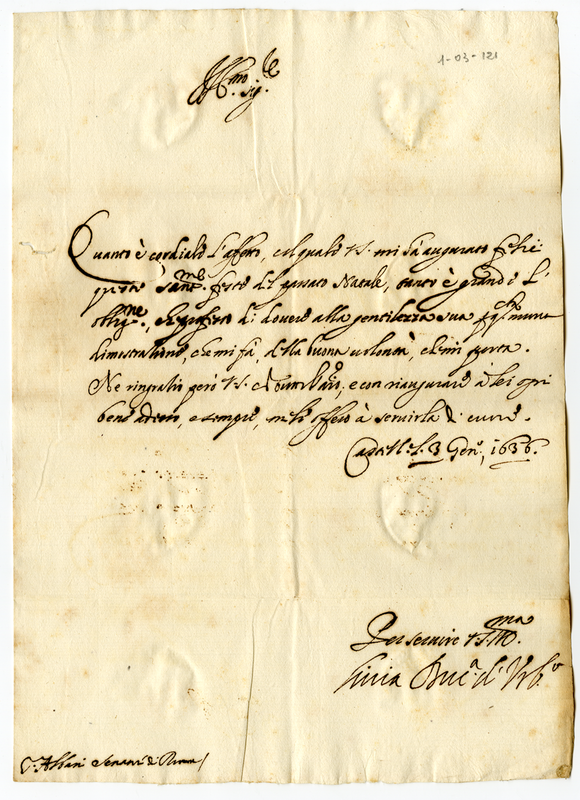 1-03-121
Ill.mo Sig.re
Quanto è cordiale l'affetto, col quale V.S. mi hà augurato felici
queste Sant.me feste del passato Natale, tanto è grande l'
oblig.ne, che professo di dovere alla gentilezza sua p
dimostratione, che mi fà, della buona volontà, che mi porta.
Ne ringratio però V.S. e con riaugurare à lei ogni
bene adesso, e sempre, me le offero à servirla di cuore.
Castell. 3 Gen.o, 1636.
Per servire V.S. Ill.ma
Livia Duc.a d'Urb.o
S. Albani Senator di Roma